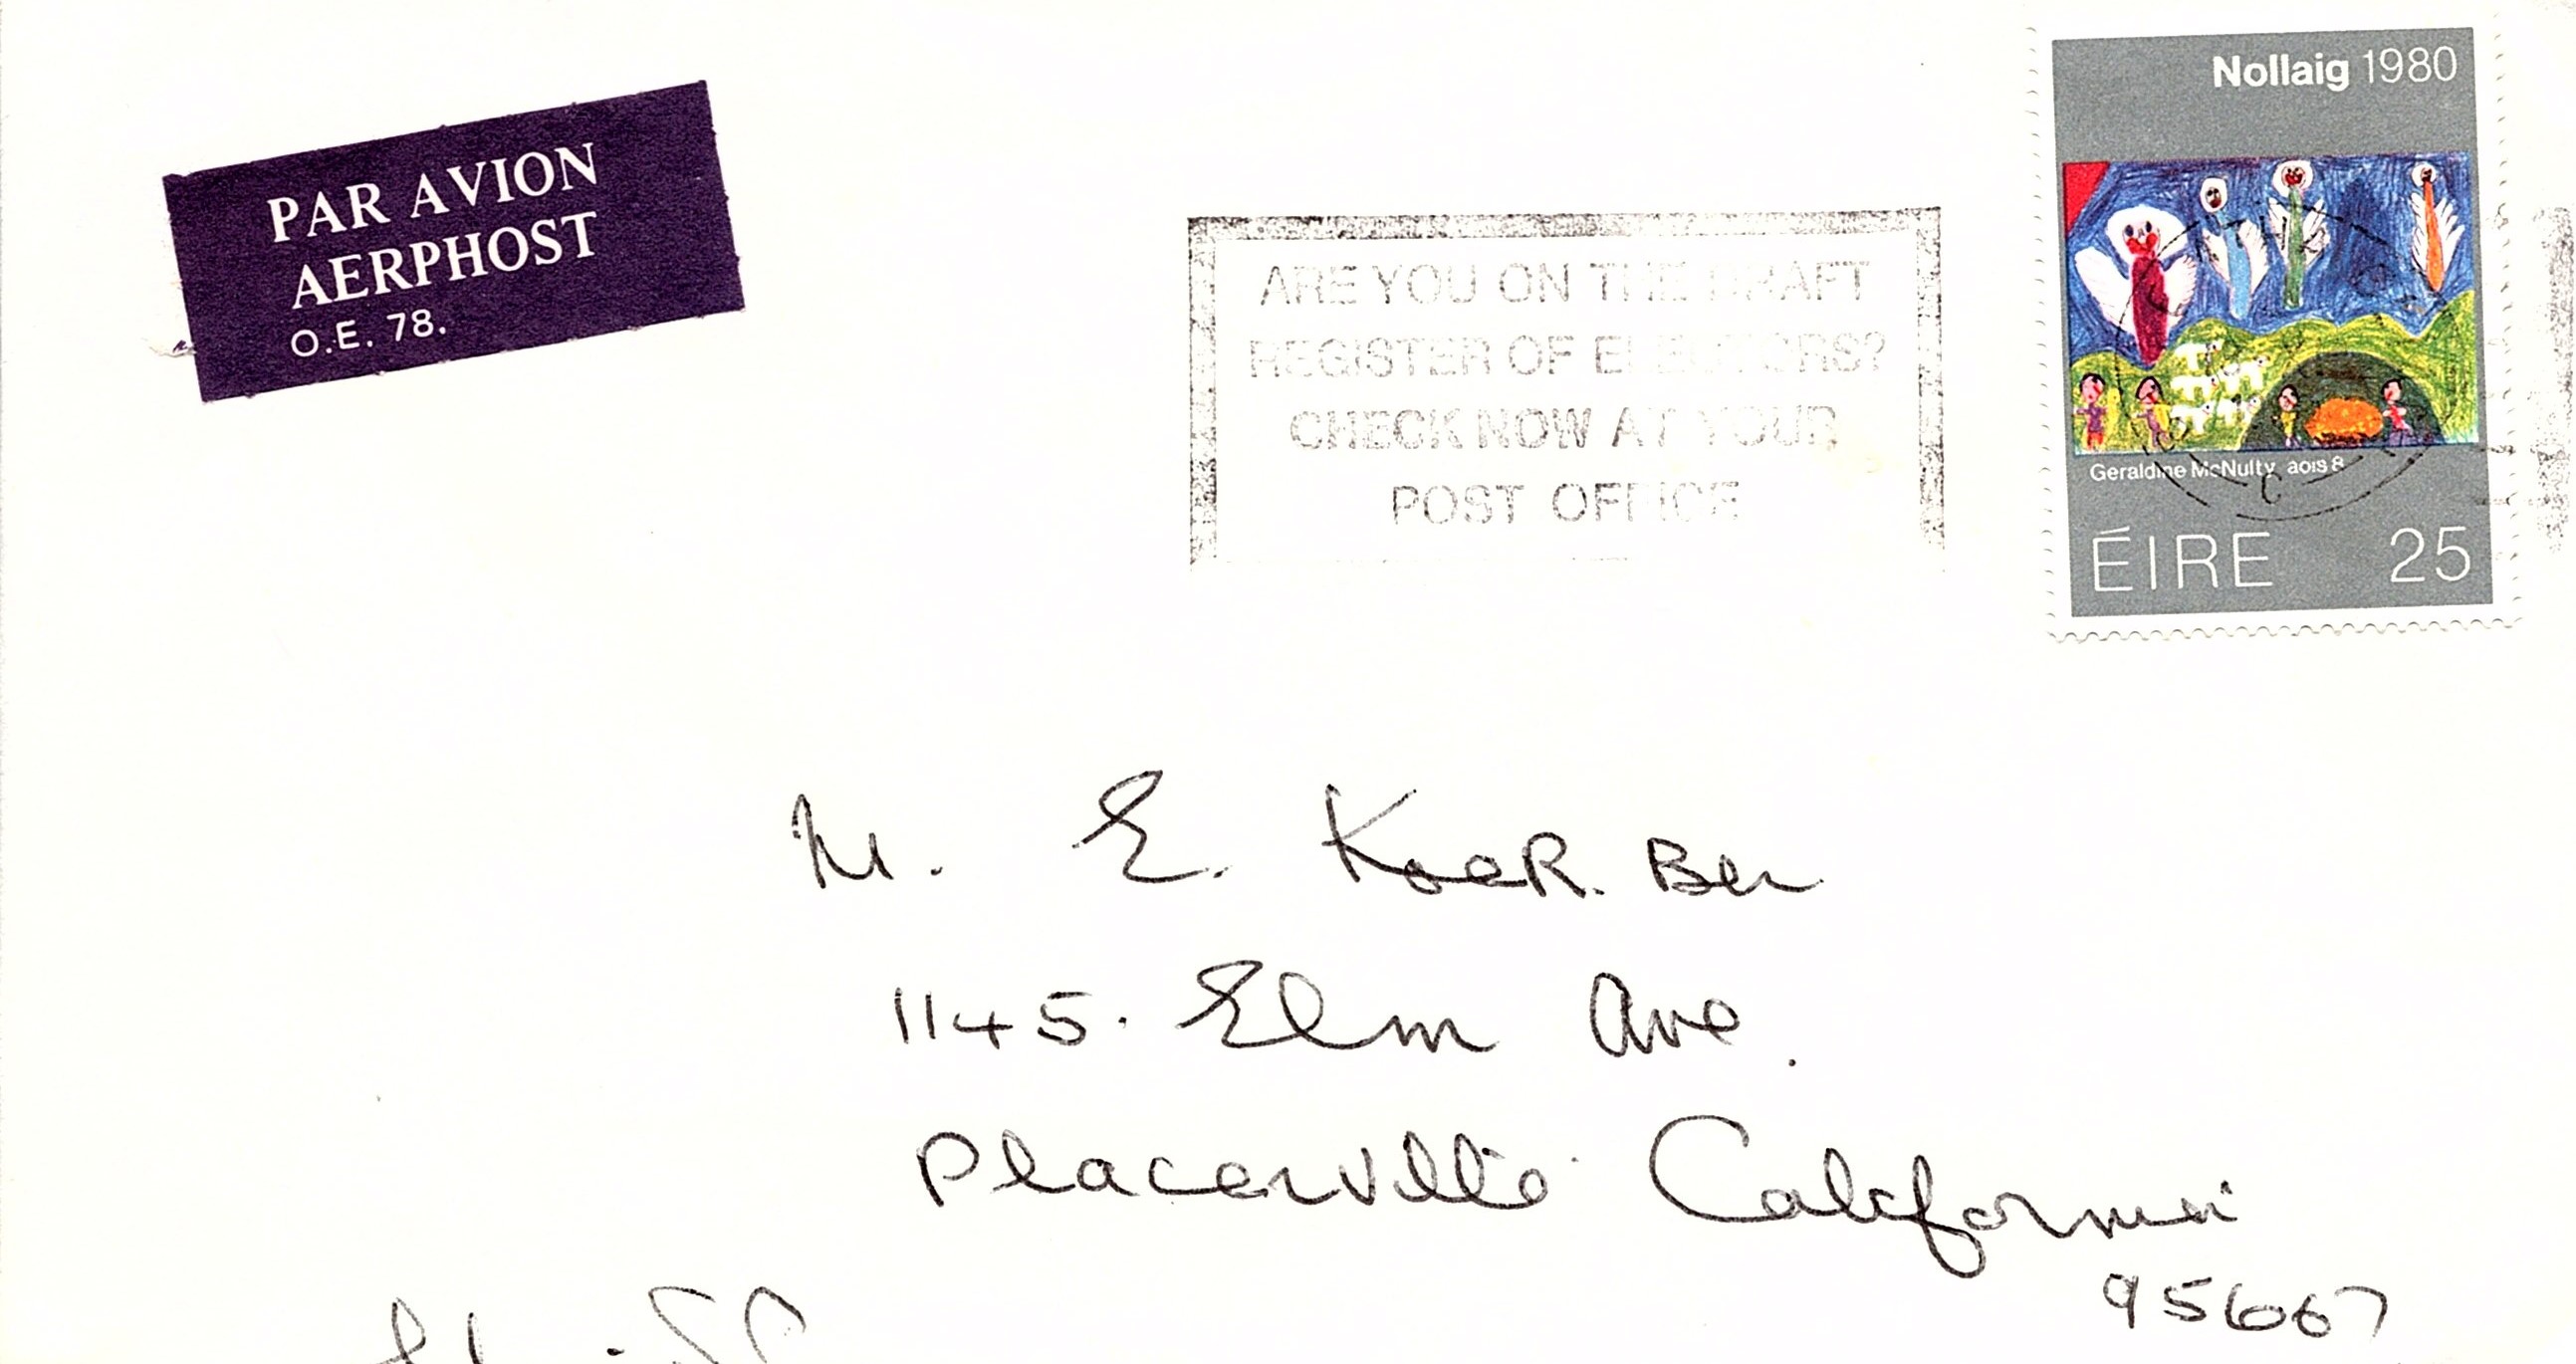 PAR AVION
AERPHOST
O.E. 78.
ARE YOU ON THE DRAFT
REGISTER OF ELECTORS?
CHECK NOW AT YOUR
POST OFFICE
Nollaig 1980
Geraldine McNulty aois 8
ÉIRE 25
M. E. KoeR. Ber
1145. Elm Ave.
Placerville California
95667